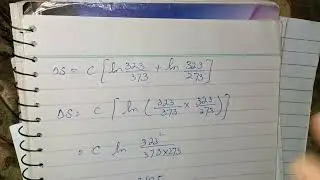 ΔS = C [ ln 323/373 + ln 323/273 ]
ΔS = C [ ln ( 323/373 × 323/273 ) ]
= C ln 323²/373×273